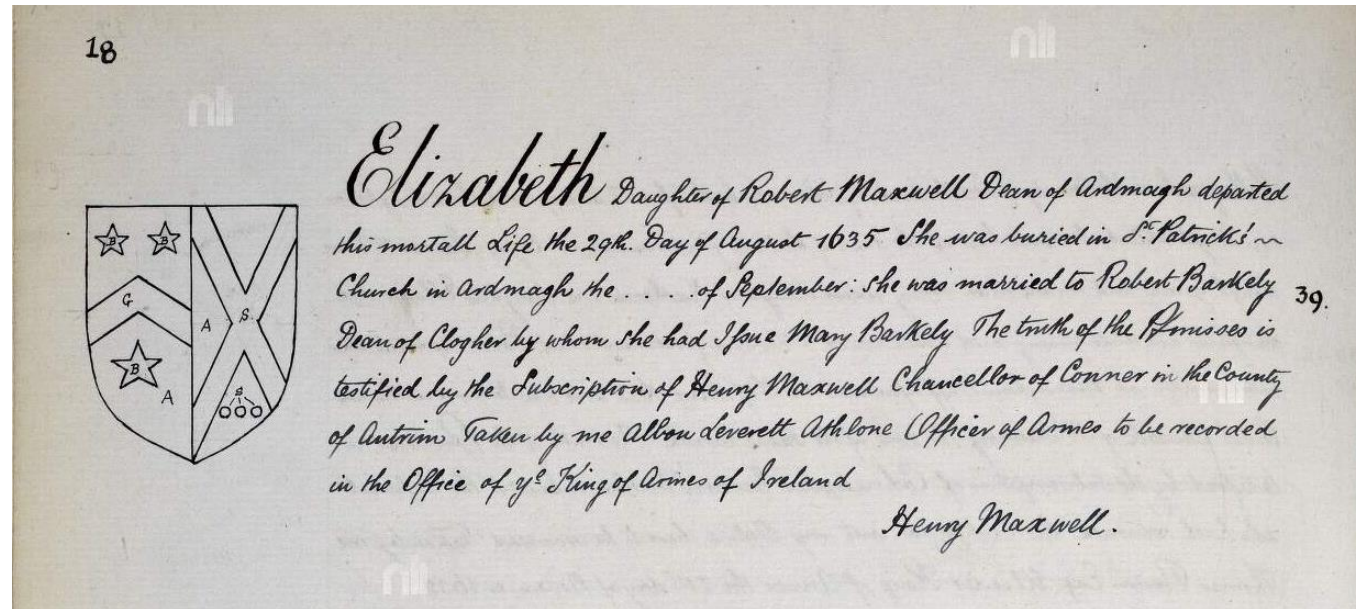 18
Elizabeth Daughter of Robert Maxwell Dean of Ardmagh departed
this mortall Life the 29th. Day of August 1635 She was buried in St. Patrick's ~
Church in Ardmagh the . . . . of September: she was married to Robert Barkely
39.
Dean of Clogher by whom she had Issue Mary Barkely The truth of the Pmisses is
testified by the Subscription of Henry Maxwell Chancellor of Conner in the County
of Antrim Taken by me Albon Leverett Athlone Officer of Armes to be recorded
in the Office of ye King of Armes of Ireland
Henry Maxwell.
B B
G
B
A
A S
B
nli
nli
nli
nli